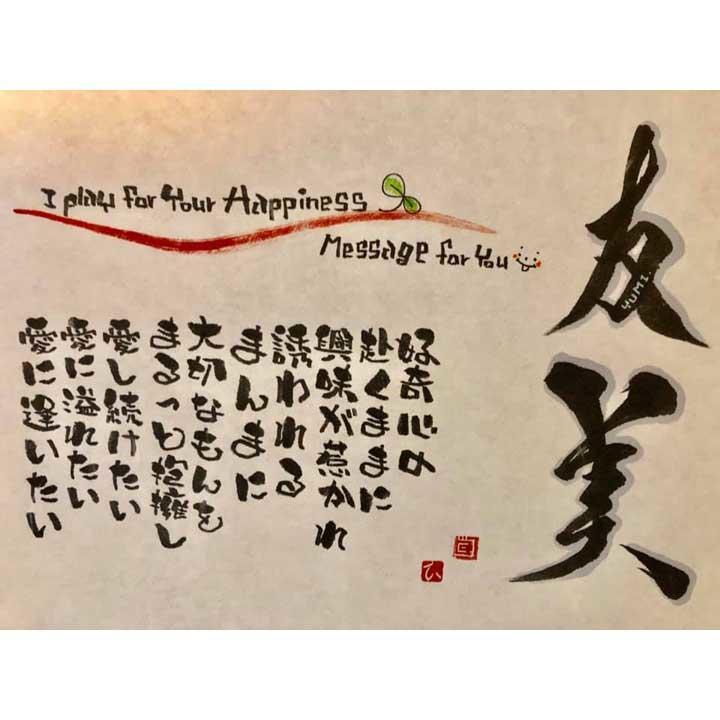 I play for Your Happiness
Message for You
友美
YUMI.
好奇心の
赴くままに
興味が惹かれ
誘われる
まんまに
大切なもんを
まるっと抱擁し
愛し続けたい
愛に溢れたい
愛に逢いたい
ひ